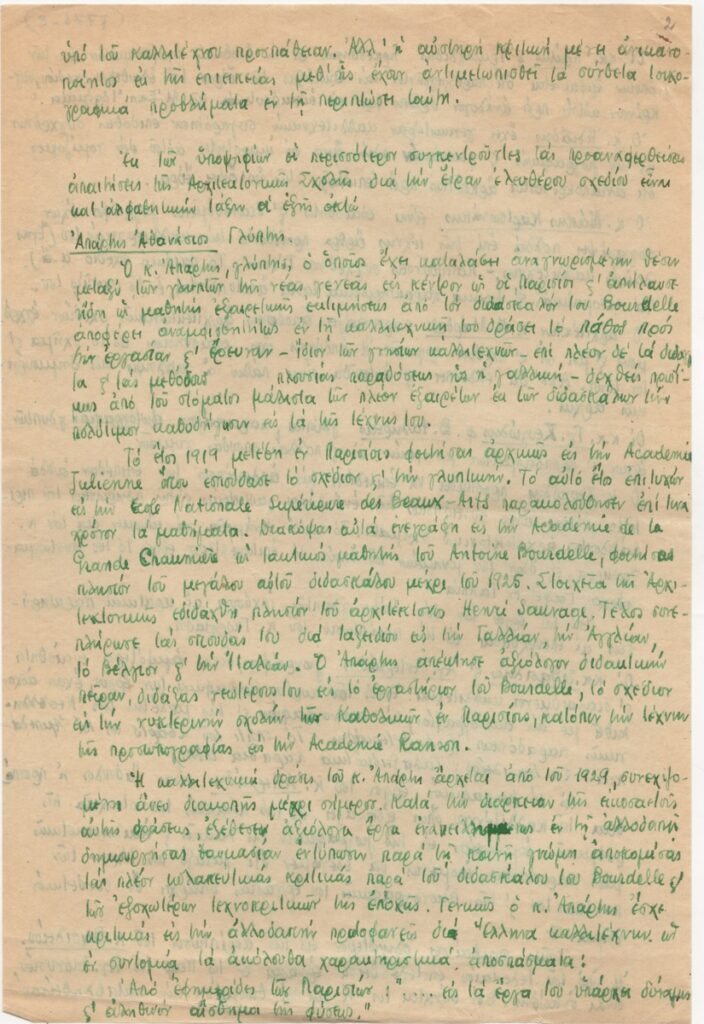 2
ὑπό τοῦ καλλιτέχνου προσπάθειαν. Ἀλλ' ἡ αὐστηρή κριτική μένει ἀνικανο-
ποίητος ἐκ τῆς ἐπιεικείας μεθ' ἧς ἔχουν ἀντιμετωπισθεῖ τά σύνθετα
προβλήματα ἐν τῇ περιπτώσει ταύτῃ.
Ἐκ τῶν ὑποψηφίων οἱ περισσότερον συγκεντροῦντες τάς προαναφερθείσας
ἀπαιτήσεις τῆς Ἀρχιτεκτονικῆς Σχολῆς διά τήν ἕδραν ἐλευθέρου σχεδίου εἶναι
κατ' ἀλφαβητικήν τάξιν οἱ ἑξῆς ὀκτώ
Ἀπάρτης Ἀθανάσιος Γλύπτης.
Ὁ κ. Ἀπάρτης, γλύπτης, ὁ ὁποῖος ἔχει καταλάβει ἀναγνωρισμένην θέσιν
μεταξύ τῶν γλυπτῶν τῆς νέας γενεᾶς εἰς κέντρον ὡς οἱ Παρίσιοι ϛ' ἀπήλαυσε
ἤδη ὡς μαθητής ἐξαιρετικῆς ἐκτιμήσεως ἀπό τόν διδάσκαλόν του Bourdelle
ἀποφέρει ἀναμφισβητήτως ἐν τῇ καλλιτεχνικῇ του δράσει τό πάθος πρός
τήν ἐργασίαν ϛ' ἔρευναν – ἴδιον τῶν γνησίων καλλιτεχνῶν – ἐπί πλέον δέ τά
ϛ' τάς μεθόδους πλουσίας παραδόσεως ὡς ἡ γαλλική – δεχθείς
ἀπό τοῦ στόματος μάλιστα τῶν πλέον ἐξαιρέτων ἐκ τῶν διδασκάλων τήν
πολύτιμον καθοδήγησιν εἰς τά τῆς τέχνης του.
Τό ἔτος 1919 μετέβη ἐν Παρισίοις φοιτήσας ἀρχικῶς εἰς τήν Academie
Julienne ὅπου ἐσπούδασε τό σχέδιον ϛ' τήν γλυπτικήν. Τό αὐτό ἔτος ἐπιτυχών
εἰς τήν Ecole Nationale Supérieure des Beaux-Arts παρακολούθησεν ἐπί ἕνα
χρόνον τά μαθήματα. Διακόψας αὐτά ἐνεγράφη εἰς τήν Academie de la
Grande Chaumière ὡς τακτικός μαθητής τοῦ Antoine Bourdelle, φοιτήσας
πλησίον τοῦ μεγάλου αὐτοῦ διδασκάλου μέχρι τοῦ 1925. Στοιχεῖα τῆς Ἀρχι-
τεκτονικῆς ἐδιδάχθη πλησίον τοῦ ἀρχιτέκτονος Henri Sauvage. Τέλος συνε-
πλήρωσε τάς σπουδάς του διά ταξειδίων εἰς τήν Γαλλίαν, τήν Ἀγγλίαν,
τό Βέλγιον ϛ' τήν Ἰταλίαν. Ὁ Ἀπάρτης ἀπέκτησε ἀξιόλογον διδακτικήν
πεῖραν, διδάξας νεωτέρους του εἰς τό ἐργαστήριον τοῦ Bourdelle, τό σχέδιον
εἰς τήν νυκτερινήν σχολήν τῶν Καθολικῶν ἐν Παρισίοις, κατόπιν τήν τέχνην
τῆς προσωπογραφίας εἰς τήν Academie Ranson.
Ἡ καλλιτεχνική δρᾶσις τοῦ κ. Ἀπάρτη ἄρχεται ἀπό τοῦ 1929, συνεχιζο-
μένη ἄνευ διακοπῆς μέχρι σήμερον. Κατά τήν διάρκειαν τῆς εἰκοσαετοῦς
αὐτῆς δράσεως, ἐξέθεσεν ἀξιόλογα ἔργα ἐπανειλημμένως ἐν τῇ ἀλλοδαπῇ
δημιουργήσας θαυμασίαν ἐντύπωσιν παρά τῇ κοινῇ γνώμῃ ἀποκομίσας
τάς πλέον κολακευτικάς κριτικάς παρά τοῦ διδασκάλου του Bourdelle ϛ'
τῶν ἐξοχωτέρων τεχνοκριτικῶν τῆς ἐποχῆς. Γενικῶς ὁ κ. Ἀπάρτης ἔσχε
κριτικάς εἰς τήν ἀλλοδαπήν πρωτοφανεῖς διά Ἕλληνα καλλιτέχνην. ὡς
ἐν συντομίᾳ τά ἀκόλουθα χαρακτηριστικά ἀποσπάσματα:
Ἀπό ἐφημερίδες τῶν Παρισίων: "... εἰς τά ἔργα του ὑπάρχει δύναμις
ϛ' ἀληθινόν αἴσθημα τῆς φύσεως."